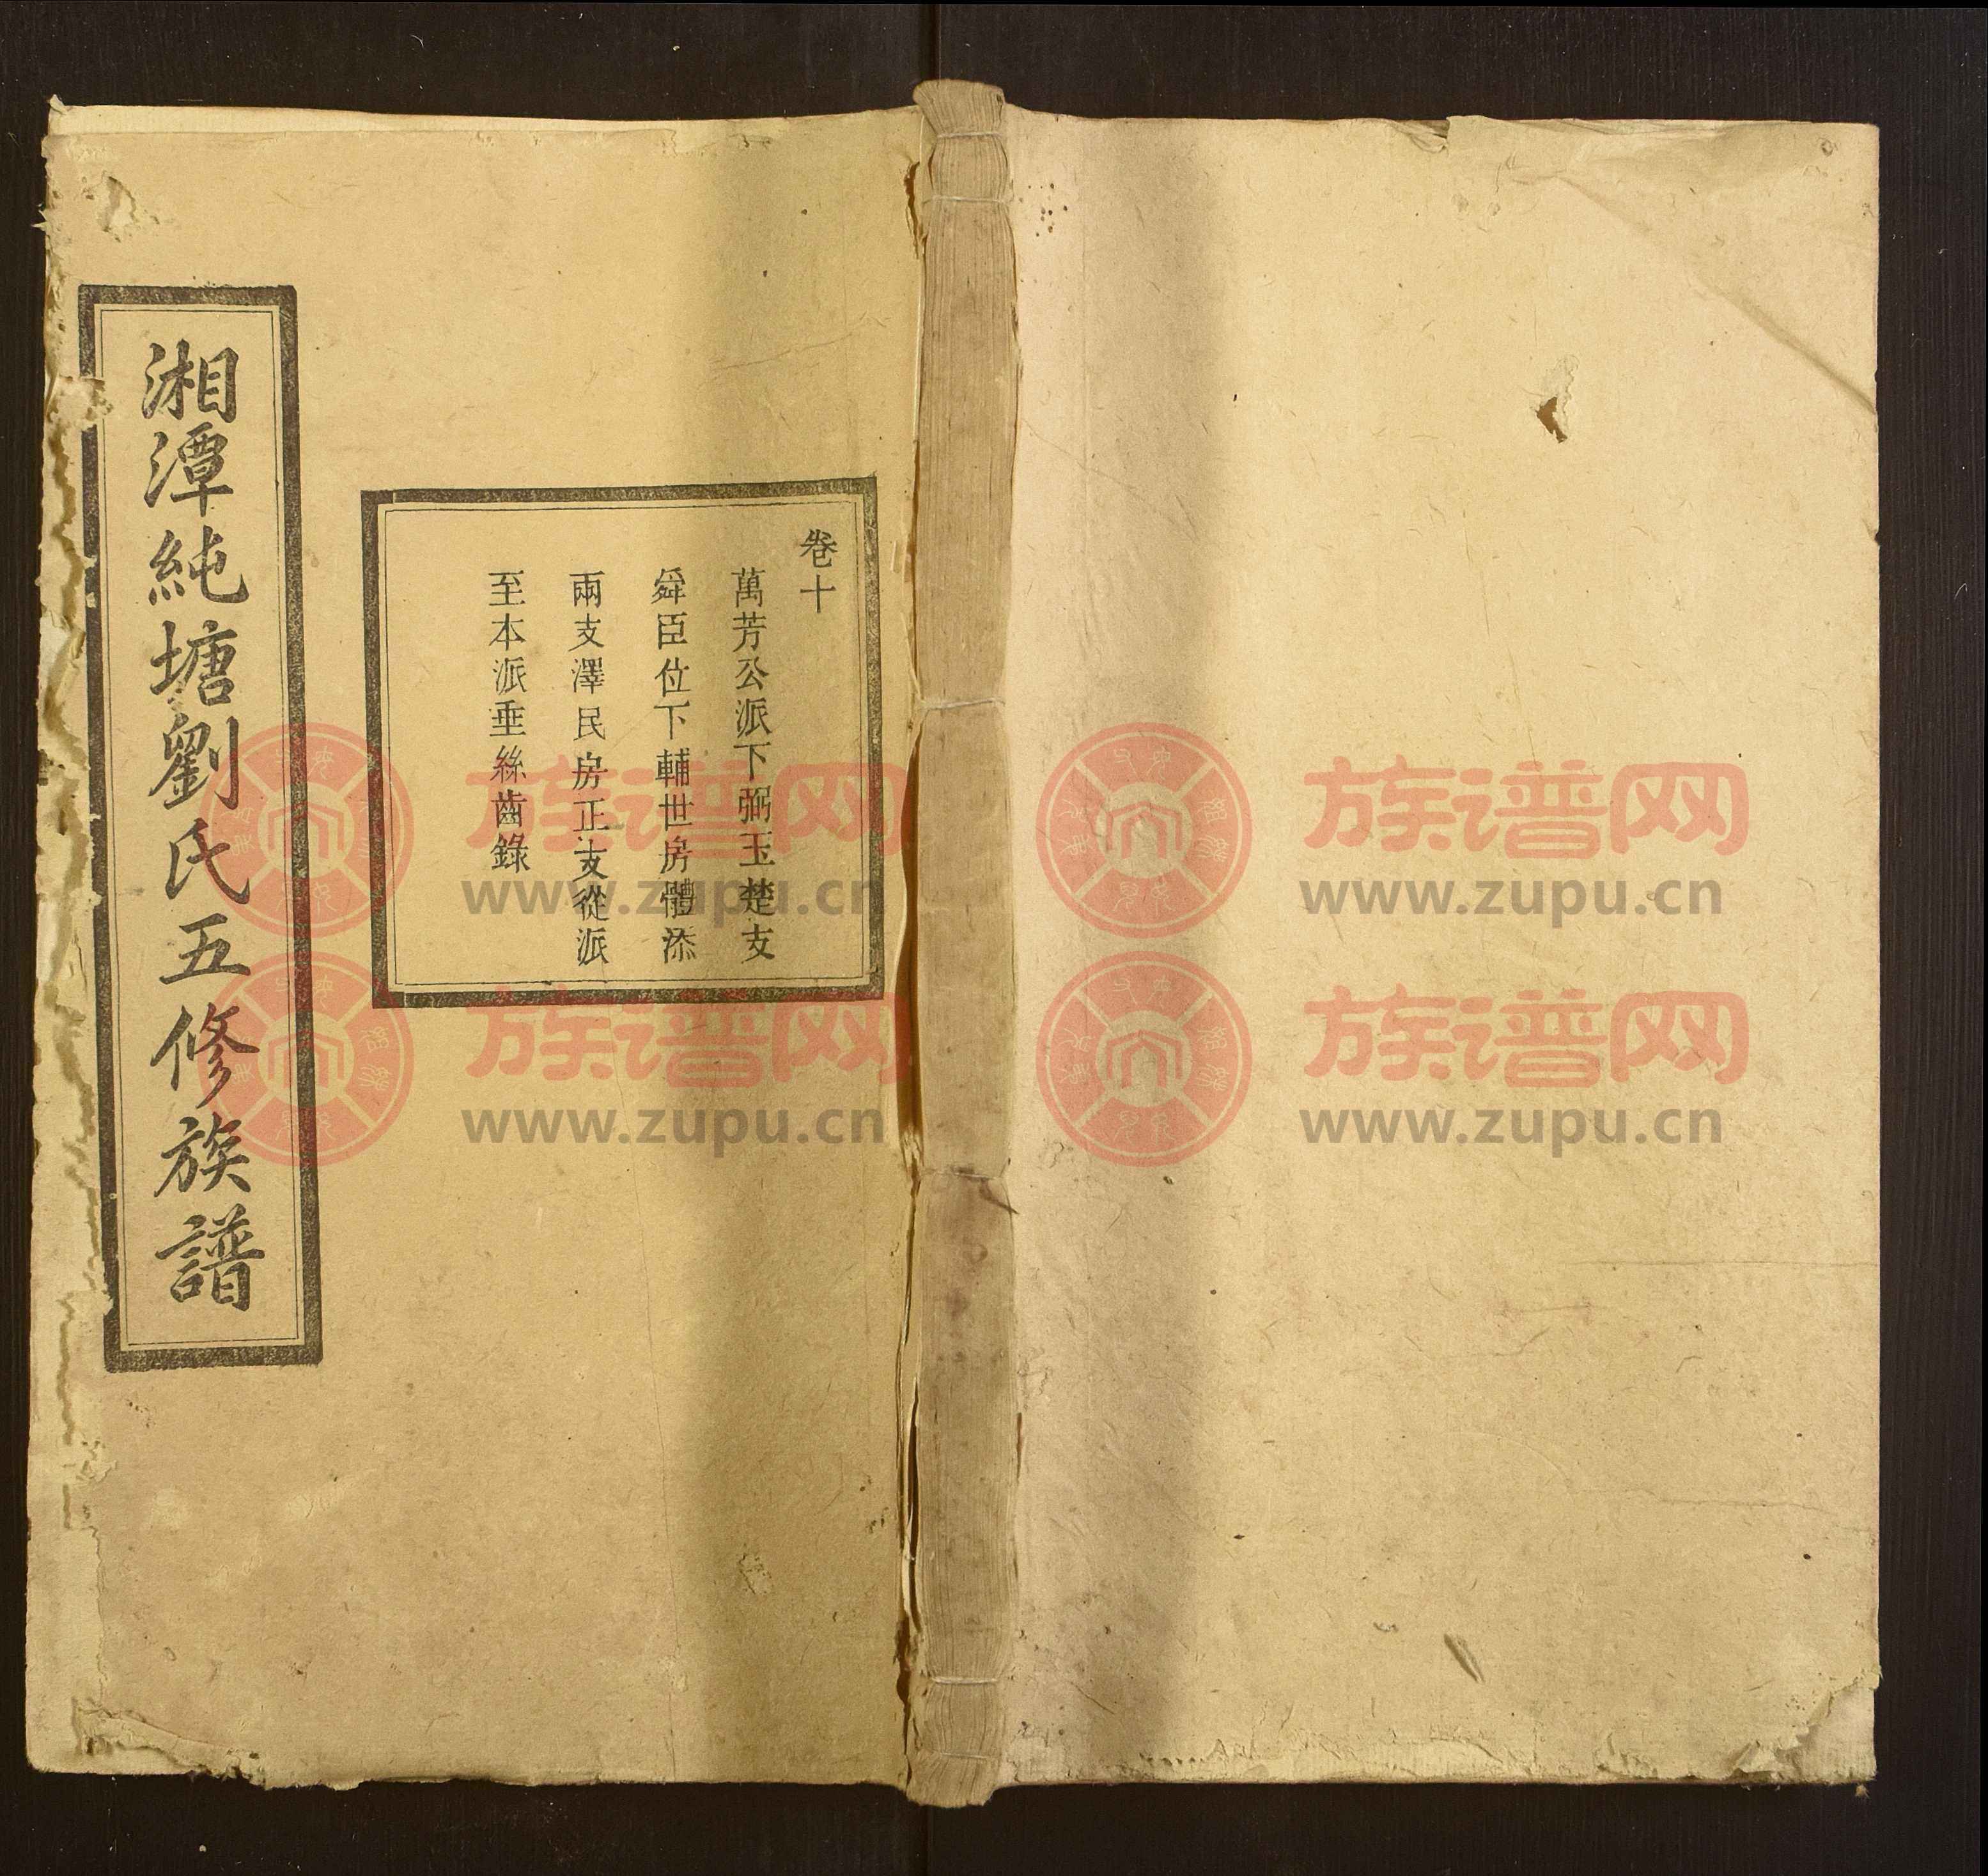 湘潭純塘劉氏五修族譜
卷十
萬芳公派下弼玉楚支
舜臣位下輔世房體添
兩支澤民房正支從派
至本派垂絲齒錄
族谱网
www.zupu.cn
族谱网
www.zupu.cn
族谱网
www.zupu.cn
族谱网
www.zupu.cn